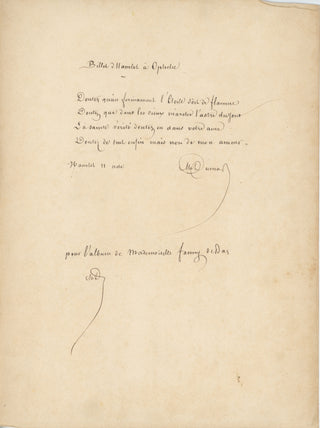 Billet d'Hamlet à Ophélie
Doutez qu'au firmament l'étoile soit de flamme
Doutez que dans les cieux marche l'astre du jour
La sainte vérité doutez en dans votre âme
Doutez de tout enfin mais non de mon amour.
Hamlet 11 acte
Alex Dumas
pour l'album de Mademoiselle fanny de
AD